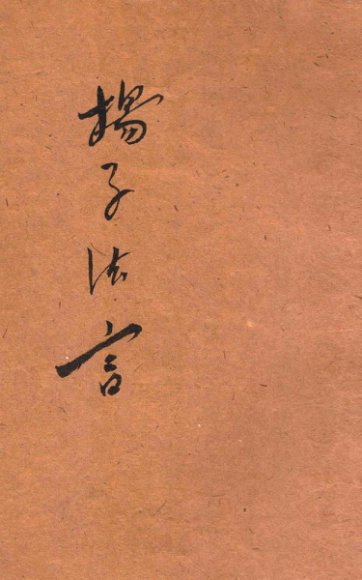 揚子法言